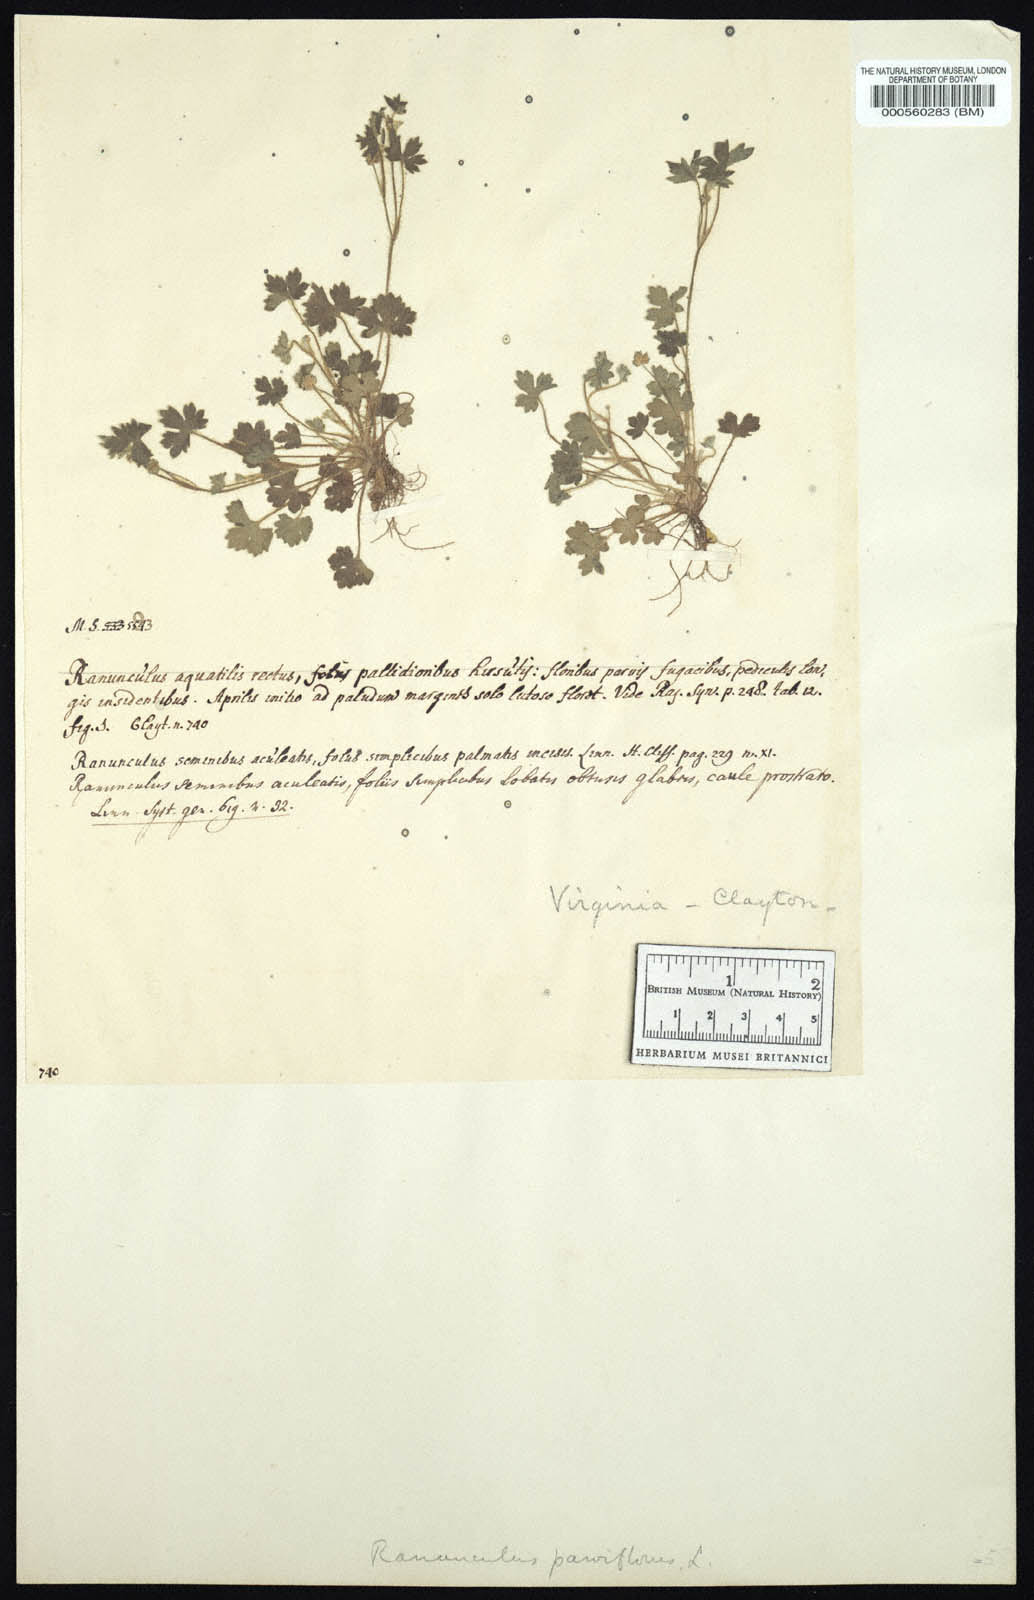 THE NATURAL HISTORY MUSEUM, LONDON
DEPARTMENT OF BOTANY
000560283 (BM)
M. S.
Ranunculus aquatilis rectus, foliis pallidioribus hirsutis: floribus parvis fugacibus, pediculis lon,
gis insidentibus. Aprilis initio ad paludum margines solo lutoso floret. Vide Raj. Syn. p. 248. tab. 12.
fig. 1. Clayt. n. 740
Ranunculus seminibus aculeatis, foliis simplicibus palmatis incisis. Linn. H. Cliff. pag. 229 n. XI.
Ranunculus seminibus aculeatis, foliis simplicibus lobatis obtusis glabris, caule prostrato.
Linn. Syst. gen. 619. n. 32.
Virginia - Clayton -
1 2
BRITISH MUSEUM (NATURAL HISTORY)
1 2 3 4 5
HERBARIUM MUSEI BRITANNICI
740
Ranunculus parviflorus, L.